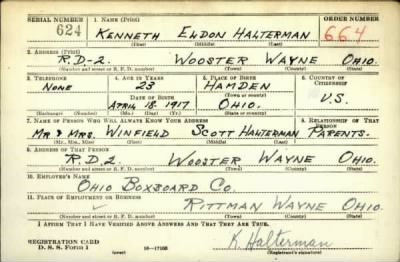 SERIAL NUMBER 1. NAME (Print) ORDER NUMBER
624 KENNETH ELDON HALTERMAN 664
(First) (Middle) (Last)
2. ADDRESS (Print)
R.D-2. WOOSTER WAYNE OHIO.
(Number and street or R. F. D. number) (Town) (County) (State)
3. TELEPHONE 4. AGE IN YEARS 5. PLACE OF BIRTH 6. COUNTRY OF CITIZENSHIP
NONE 23 HAMDEN
DATE OF BIRTH (Town or county)
APRIL 18 1917 OHIO. U.S.
(Exchange) (Number) (Mo.) (Day) (Yr.) (State or country)
7. NAME OF PERSON WHO WILL ALWAYS KNOW YOUR ADDRESS 8. RELATIONSHIP OF THAT PERSON
MR & MRS. WINFIELD SCOTT HALTERMAN PARENTS.
(Mr., Mrs., Miss) (First) (Middle) (Last)
9. ADDRESS OF THAT PERSON
R.D.2. WOOSTER WAYNE OHIO.
(Number and street or R. F. D. number) (Town) (County) (State)
10. EMPLOYER'S NAME
OHIO BOXBOARD CO.
11. PLACE OF EMPLOYMENT OR BUSINESS
RITTMAN WAYNE OHIO.
(Number and street or R. F. D. number) (Town) (County) (State)
I AFFIRM THAT I HAVE VERIFIED ABOVE ANSWERS AND THAT THEY ARE TRUE.
K. Halterman
REGISTRATION CARD
D. S. S. Form 1 (over) 16-17105 (Registrant's signature)